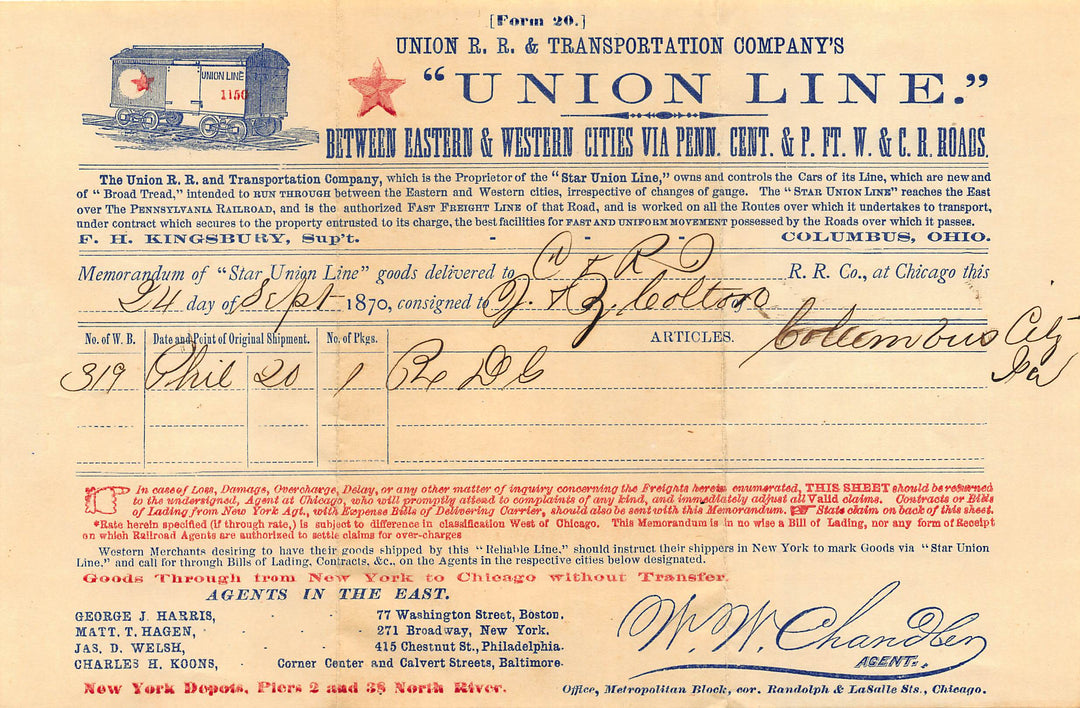 [Form 20.]
UNION R. R. & TRANSPORTATION COMPANY'S
"UNION LINE."
UNION LINE
1150
BETWEEN EASTERN & WESTERN CITIES VIA PENN. CENT. & P. FT. W. & C. R. ROADS.
The Union R. R. and Transportation Company, which is the Proprietor of the "Star Union Line," owns and controls the Cars of its Line, which are new and
of "Broad Tread," intended to RUN THROUGH between the Eastern and Western cities, irrespective of changes of gauge. The "STAR UNION LINE" reaches the East
over The PENNSYLVANIA RAILROAD, and is the authorized FAST FREIGHT LINE of that Road, and is worked on all the Routes over which it undertakes to transport,
under contract which secures to the property entrusted to its charge, the best facilities for FAST AND UNIFORM MOVEMENT possessed by the Roads over which it passes.
F. H. KINGSBURY, Sup't. - - - COLUMBUS, OHIO.
Memorandum of "Star Union Line" goods delivered to C & R R. R. Co., at Chicago this
24 day of Sept 1870, consigned to Colton
Columbus City
Ia
No. of W. B. Date and Point of Original Shipment. No. of Pkgs. ARTICLES.
319 Phil 20 1 Bx D G
In case of Loss, Damage, Overcharge, Delay, or any other matter of inquiry concerning the Freights herein enumerated, THIS SHEET should be returned
to the undersigned, Agent at Chicago, who will promptly attend to complaints of any kind, and immediately adjust all Valid claims. Contracts or Bills
of Lading from New York Agt., with Expense Bills of Delivering Carrier, should also be sent with this Memorandum. State claim on back of this sheet.
*Rate herein specified (if through rate,) is subject to difference in classification West of Chicago. This Memorandum is no wise a Bill of Lading, nor any form of Receipt
on which Railroad Agents are authorized to settle claims for over-charges
Western Merchants desiring to have their goods shipped by this "Reliable Line," should instruct their shippers in New York to mark Goods via "Star Union
Line," and call for through Bills of Lading, Contracts, &c., on the Agents in the respective cities below designated.
Goods Through from New York to Chicago without Transfer.
AGENTS IN THE EAST.
GEORGE J. HARRIS, - - 77 Washington Street, Boston.
MATT. T. HAGEN, - - - 271 Broadway, New York.
JAS. D. WELSH, - - - 415 Chestnut St., Philadelphia.
CHARLES H. KOONS, - Corner Center and Calvert Streets, Baltimore.
New York Depots, Piers 2 and 38 North River.
W. W. Chandler
AGENT.
Office, Metropolitan Block, cor. Randolph & LaSalle Sts., Chicago.